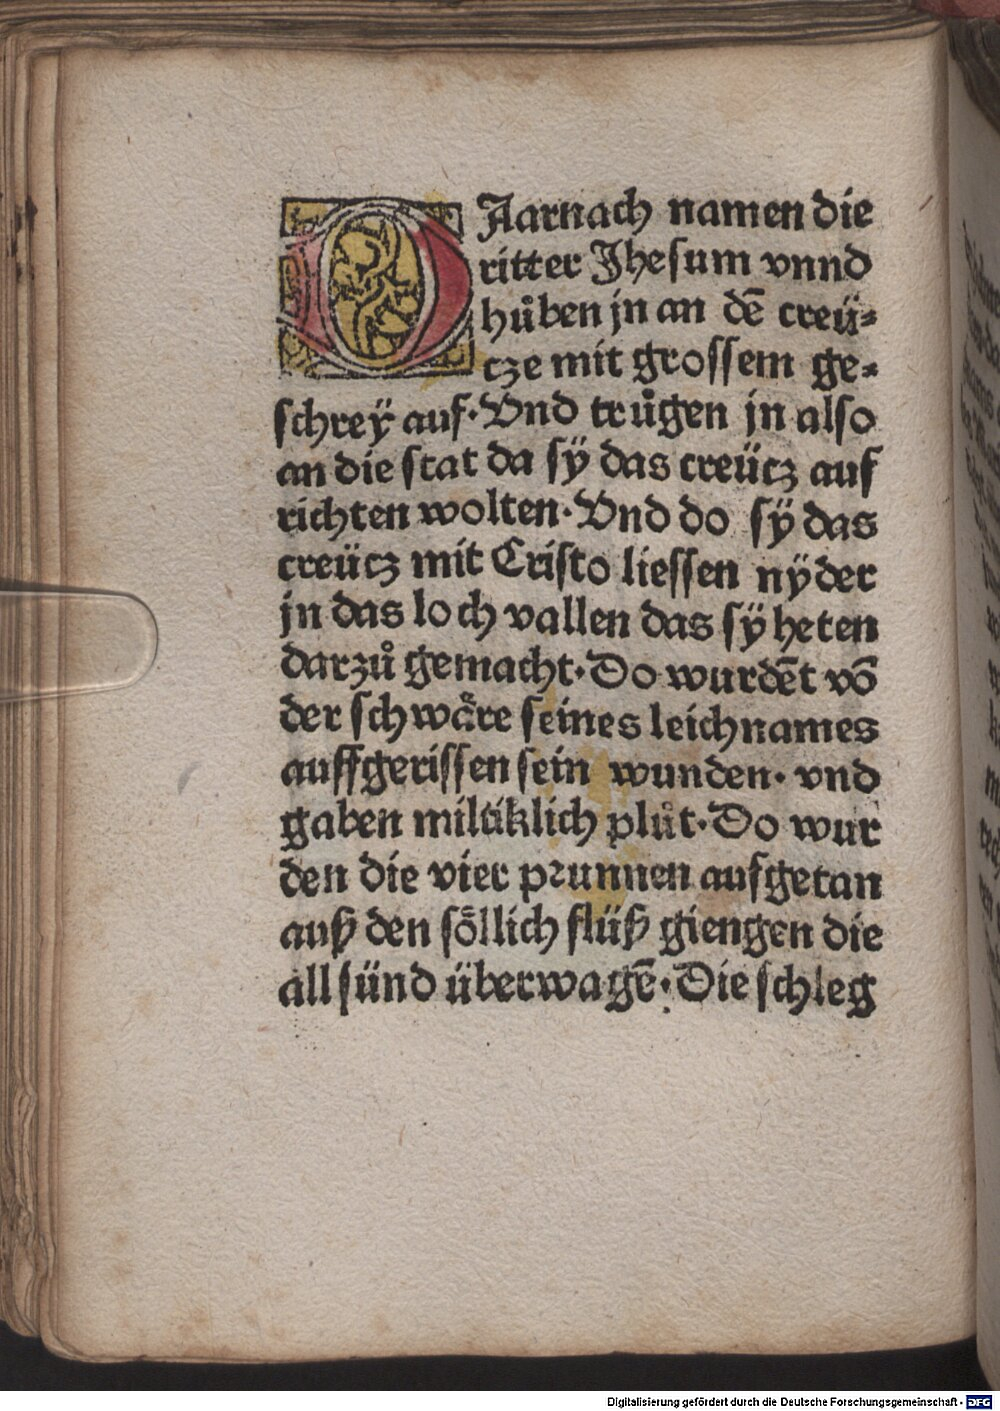 DAarnach namen die
ritter Jhesum vnnd
hůben jn an dē creü⸗
cze mit grossem ge⸗
schreÿ auf·Vnd trůgen jn also
an die stat da sÿ das creücz auf
richten wolten·Vnd do sÿ das
creücz mit Cristo liessen nÿder
jn das loch vallen das sÿ heten
darzů gemacht·Do wurdēt vō
der schwäre seines leichnames
auffgerissen sein wunden· vnd
gaben miltiklich plůt·Do wur
den die vier prunnen aufgetan
auß den söllich flüß giengen die
all sünd überwagē·Die schleg
Digitalisierung gefördert durch die Deutsche Forschungsgemeinschaft - DFG